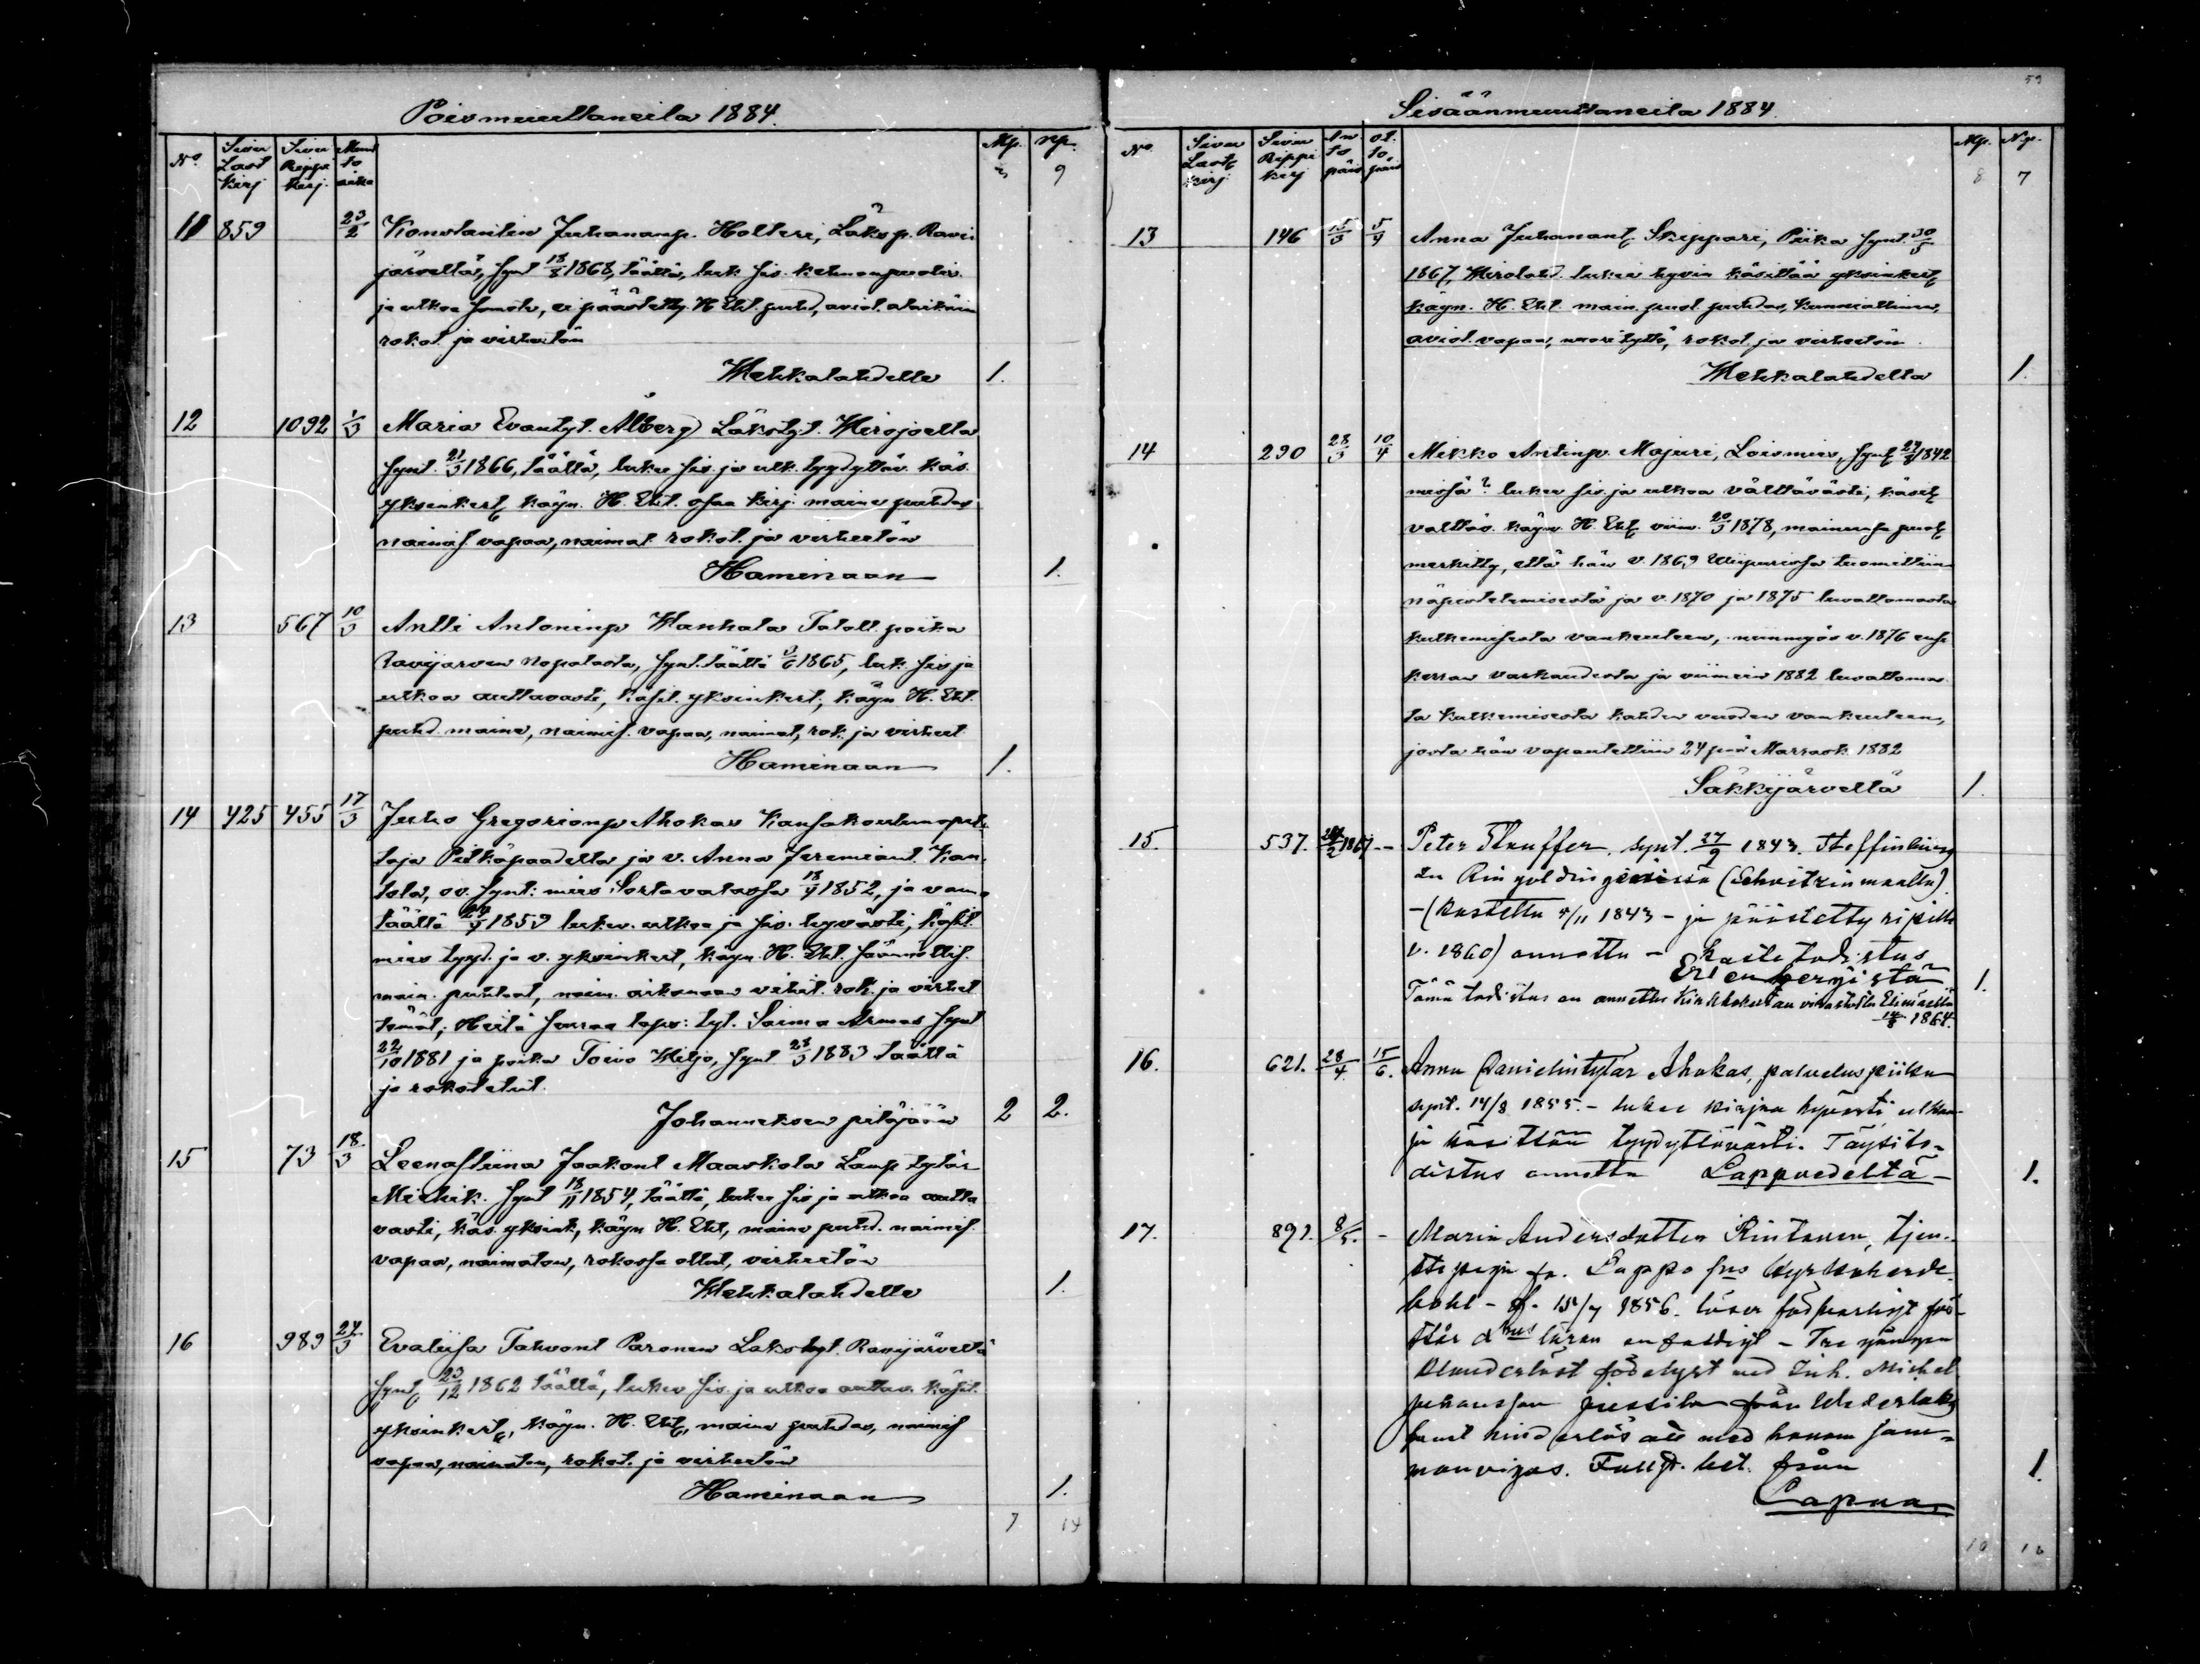 Poismuuttaneita 1884.
No. Sivu Last kirj Sivu Rippi kirj. Muut to aika Mp. Np.
9
11 859 23/2 Konstantin Juhananp. Holteri, Läksp. Ravi
järveltä, synt 18/8 1868, täältä, luk sis.
ja ulkoa, ei päästetty H. Eht. puhd, aviot. alaikäin
rokot. ja virheetön
Wehkalahdelle 1.
12 1092 1/3 Maria Evantyt. Ålberg Lökstyt. Wirojoelta
synt. 21/3 1866, täältä, lukee sis. ja ulk. tyydyttäv. käs.
yksinkert, käyn. H. Eht. osaa kirj. maine puhdas
naimis. vapaa, naimat. rokot. ja virheetön
Haminaan 1.
13 567 10/3 Antti Antoninp Wankala Taloll. poika
Ravijärven, synt. täältä 3/6 1865, luk. sis ja
ulkoa auttavasti, käsit. yksinkert, käyn H. Eht.
puhd. maine, naimis. vapaa, naimat, rok. ja virheet.
Haminaan 1.
14 425 455 17/3 Juho Gregorionp Ahokas Kansakoulunopet-
taja Pitkäpaadelta ja v. Anna Jeremiant. Kan
tola, ov. synt: mies Sortavalassa 18/9 1852, ja vaimo
täältä 1859 lukev. ulkoa ja sis. hyvästi, käsit.
mies tyyd. ja v. yksinkert, käyn. H. Eht. säännöllis.
main. puhtaat, naim. rok. ja virheet
tömät, Heitä seuraa laps: tyt. Saima Armas synt
22/10 1881 ja poika Toivo Wiljo, synt 28/3 1883 täältä
ja rokotetut.
Johanneksen pitäjään 2 2.
15 73 18/3 Leenastiina Jaakont Maaskola Lamp. tytär
synt 18/11 1854, täältä, lukee sis ja ulkoa autta
vasti, käs. yksink, käyn H. Eht, maine puhd. naimis.
vapaa, naimaton, rokossa ollut, virheetön
Wehkalahdelle 1.
16 989 24/3 Evaliisa Tahvont Paronen Läkstyt. Ravijärveltä
synt 23/12 1862 täältä, lukee sis. ja ulkoa auttav. käsit.
yksinkert, käyn. H. Eht, maine puhdas, naimis
vapaa, naimaton, rokot. ja virheetön
Haminaan 1.
7 14
59
Sisäänmuuttaneita 1884
No. Sivu Last kirj Sivu Rippi kirj An to päiv ot. to päiv Mp. Np.
8 7
13 146 15/3 5/4 Anna Juhanant. Skippari, Piika synt. 30/5
1867, Wirolahd. lukee hyvin käsittää yksinkert
käyn. H. Eht. main. puol. puhdas, kunniallinen,
aviol. vapaa, nuori tyttö, rokot. ja virheetön.
Wehkalahdelta 1.
14 290 28/3 10/4 Mikko Antinp. Majuri, Loismies, synt 1842
missä? lukee sis. ja ulkoa välttävästi, käsit
välttäv. käyn. H. Eht viim. 20/3 1878, maineensa puol
merkitty, että hän v. 1869 Wiipurissa tuomittiin
näpistelemisestä ja v. 1870 ja 1875 luvattomasta
kulkemisesta vankeuteen, niinmyös v. 1876 ens.
kerran varkaudesta ja viimein 1882 luvattomas
ta kulkemisesta kahden vuoden vankeuteen,
josta hän vapautettiin 24 pnä Marrask. 1882
Säkkijärveltä 1.
15. 537. 1867 - Peter Stauffer, synt. 27/9 1843. Steffinburg
in Ringoldingenissä (Schveitzin maalla).
-(kastettu 5/11 1843 - ja päästetty ripille
v. 1860) annettu - kastetodistus
1.
Tämä todistus on annettu Kirkkoherran virastosta Elimäellä
1864.
16. 621. 28/4. 15/6. Anna Danielintytär Ahokas, palveluspiika
synt. 14/8 1855. - lukee kirjaa hyvästi ulkoa
ja käsittää tyydyttävästi. Täysito-
distus annettu Lappvedeltä - 1.
17. 891. 8/5. - Maria Andersdotter Rintanen, tjen-
ste piga fr. Lappo Kyrkoherde
bohl - f. 15/7 1856. läser försvarligt för
står läran enfaldigt - Tre gånger
obanderlöst med Inh. Michel
Johansson från Wederlaks
samt hinderlös att med honom sam=
manvigas. Fullst. bet. från
Lapua. 1.
10 10